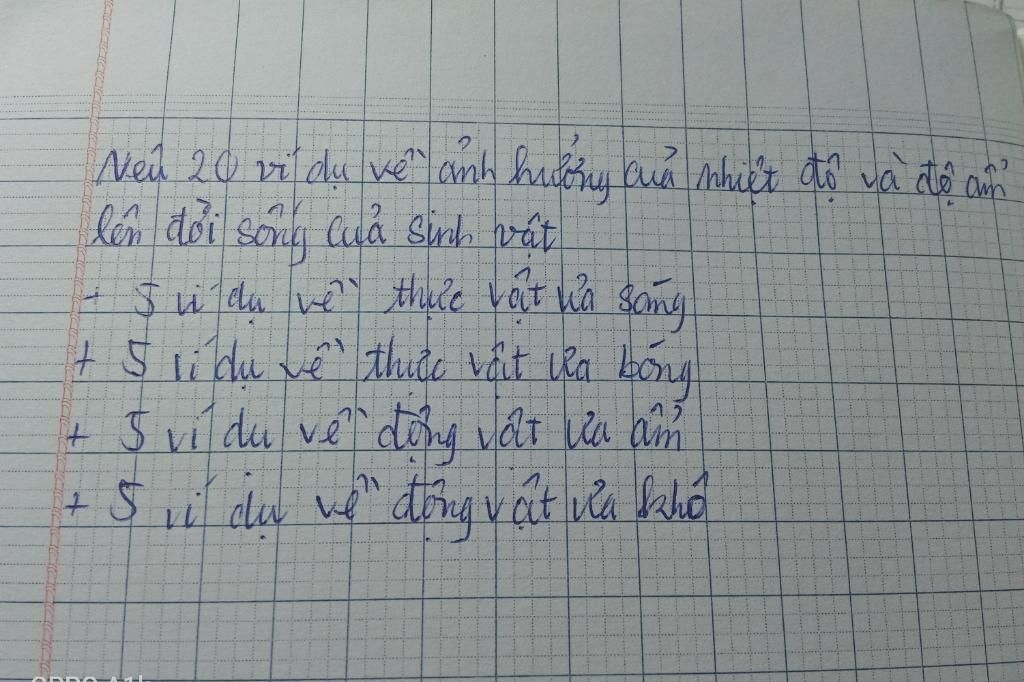 Nêu 20 ví dụ về ảnh hưởng của nhiệt độ và độ ẩm
lên đời sống của sinh vật
+ 5 ví dụ về thực vật ưa sáng
+ 5 ví dụ về thực vật ưa bóng
+ 5 ví dụ về động vật ưa ẩm
+ 5 ví dụ về động vật ưa khô